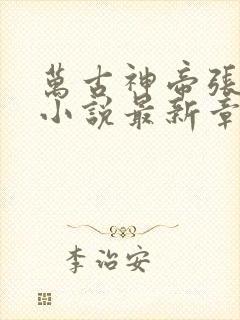 萬古神帝張
小說最新章
李治安